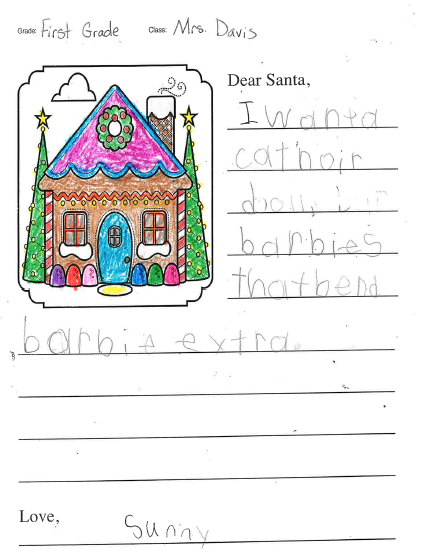 Grade: First Grade Class: Mrs. Davis
Dear Santa,
I wanta
cat noir
doll,
barbies
that bend
barbie extra.
Love,
Sunny